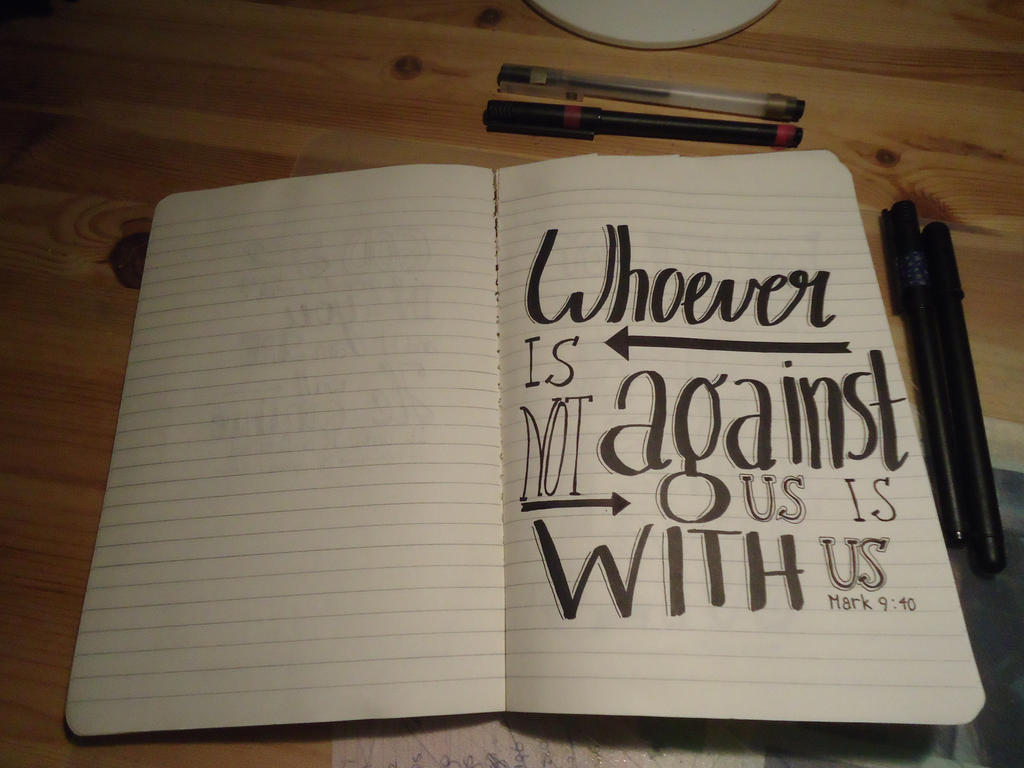 Whoever
IS
NOT against
US IS
WITH US
Mark 9:40